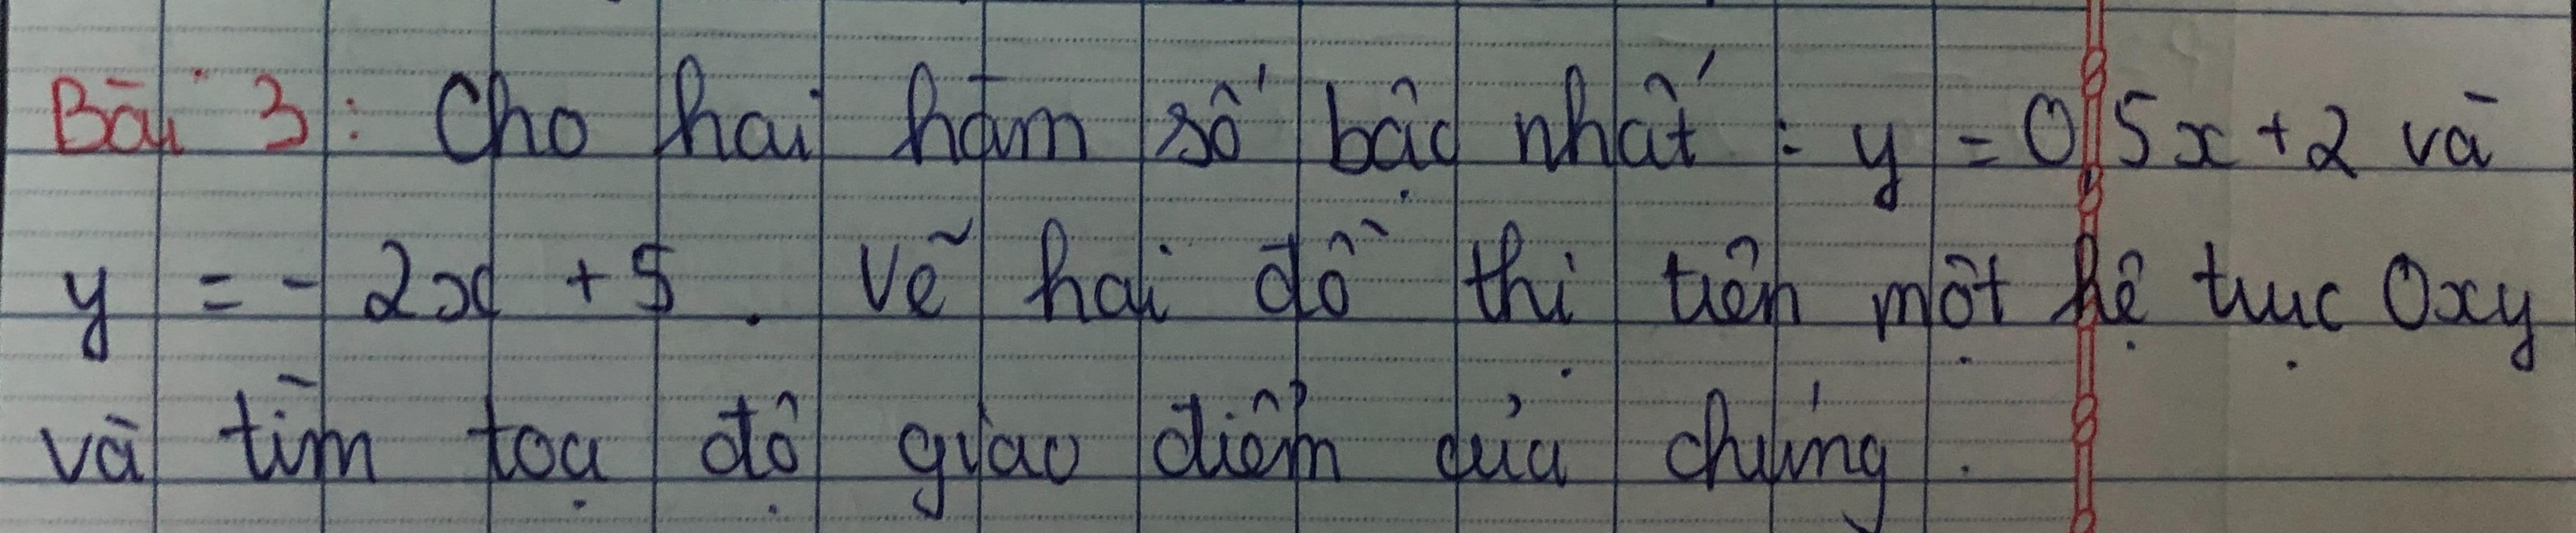 Bài 3: Cho hai hàm số bậc nhất : y = 0,5x + 2 và
y = - 2x + 5. Vẽ hai đồ thị trên một hệ trục Oxy
và tìm toạ độ giao điểm của chúng.